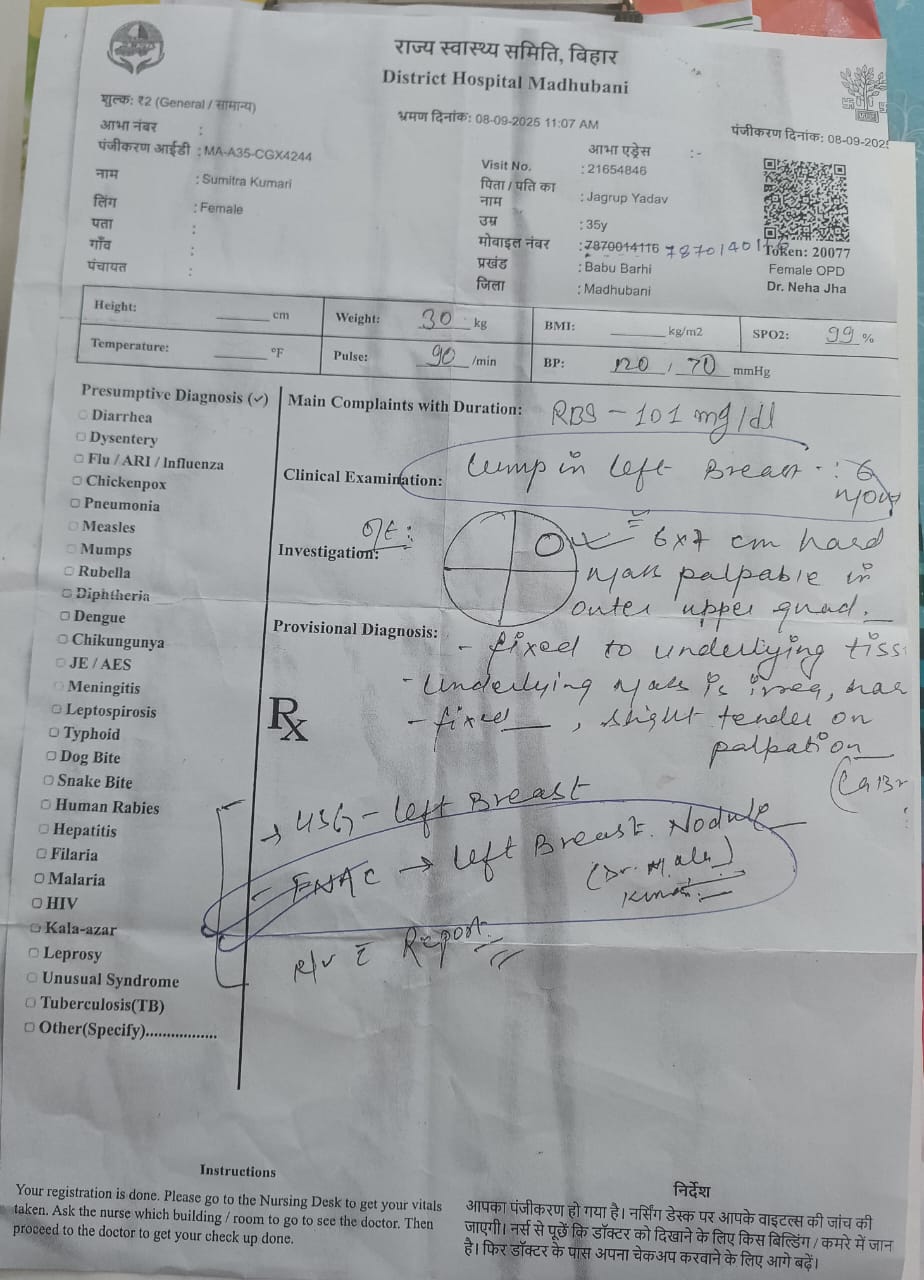 राज्य स्वास्थ्य समिति, बिहार
District Hospital Madhubani
शुल्क: ₹2 (General / सामान्य)
भ्रमण दिनांक: 08-09-2025 11:07 AM
पंजीकरण दिनांक: 08-09-202
आभा नंबर :
आभा एड्रेस :-
पंजीकरण आईडी : MA-A35-CGX4244
Visit No. : 21654846
नाम : Sumitra Kumari
पिता / पति का नाम : Jagrup Yadav
लिंग : Female
उम्र : 35y
पता :
मोबाइल नंबर : 7870014116
Token: 20077
गाँव :
प्रखंड : Babu Barhi
Female OPD
पंचायत :
जिला : Madhubani
Dr. Neha Jha
Height: ____ cm
Weight: 30 kg
BMI: ____ kg/m2
SPO2: 99 %
Temperature: ____ °F
Pulse: 90 /min
BP: 120 / 70 mmHg
Presumptive Diagnosis (✓)
Diarrhea
Dysentery
Flu / ARI / Influenza
Chickenpox
Pneumonia
Measles
Mumps
Rubella
Diphtheria
Dengue
Chikungunya
JE / AES
Meningitis
Leptospirosis
Typhoid
Dog Bite
Snake Bite
Human Rabies
Hepatitis
Filaria
Malaria
HIV
Kala-azar
Leprosy
Unusual Syndrome
Tuberculosis(TB)
Other(Specify).................
Main Complaints with Duration: RBS - 101 mg/dl
Clinical Examination: Lump in left Breast : 6
Investigation: O/E :
6x7 cm hard
mass palpable in
outer upper quad.
Provisional Diagnosis:
- fixed to underlying tiss
- Underlying mass is irreg, har
- fixed, slight tender on
palpation
Rx
→ USG - left Breast
- FNAC → left Breast Nodule
R/v c̄ Report
Instructions
Your registration is done. Please go to the Nursing Desk to get your vitals
taken. Ask the nurse which building / room to go to see the doctor. Then
proceed to the doctor to get your check up done.
निर्देश
आपका पंजीकरण हो गया है। नर्सिंग डेस्क पर आपके वाइटल्स की जांच की
जाएगी। नर्स से पूछें कि डॉक्टर को दिखाने के लिए किस बिल्डिंग / कमरे में जान
है। फिर डॉक्टर के पास अपना चेकअप करवाने के लिए आगे बढ़ें।